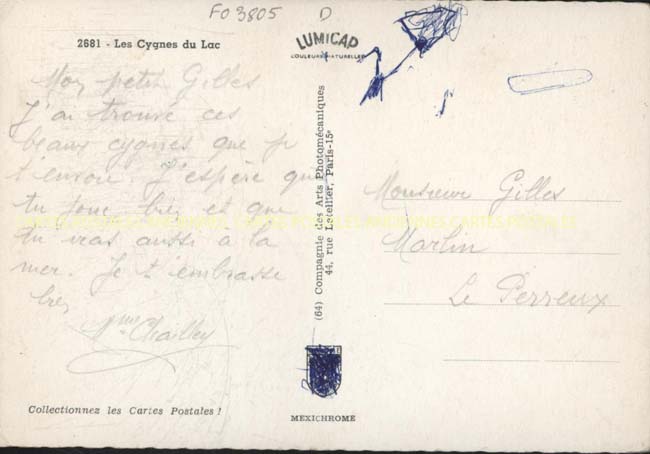 FO 3805 D
2681 - Les Cygnes du Lac
LUMICAP
COULEURS NATURELLES
Mon petit Gilles
J'ai trouvé ces
beaux cygnes que je
t'envoie J'espère que
tu joue bien et que
tu vras aussi a la
mer. Je t'embrasse
bien
Mme Chailley
Collectionnez les Cartes Postales !
(64) Compagnie des Arts Photomécaniques
44, rue Letellier, Paris-15e
MEXICHROME
Monsieur Gilles
Martin
Le Perreux